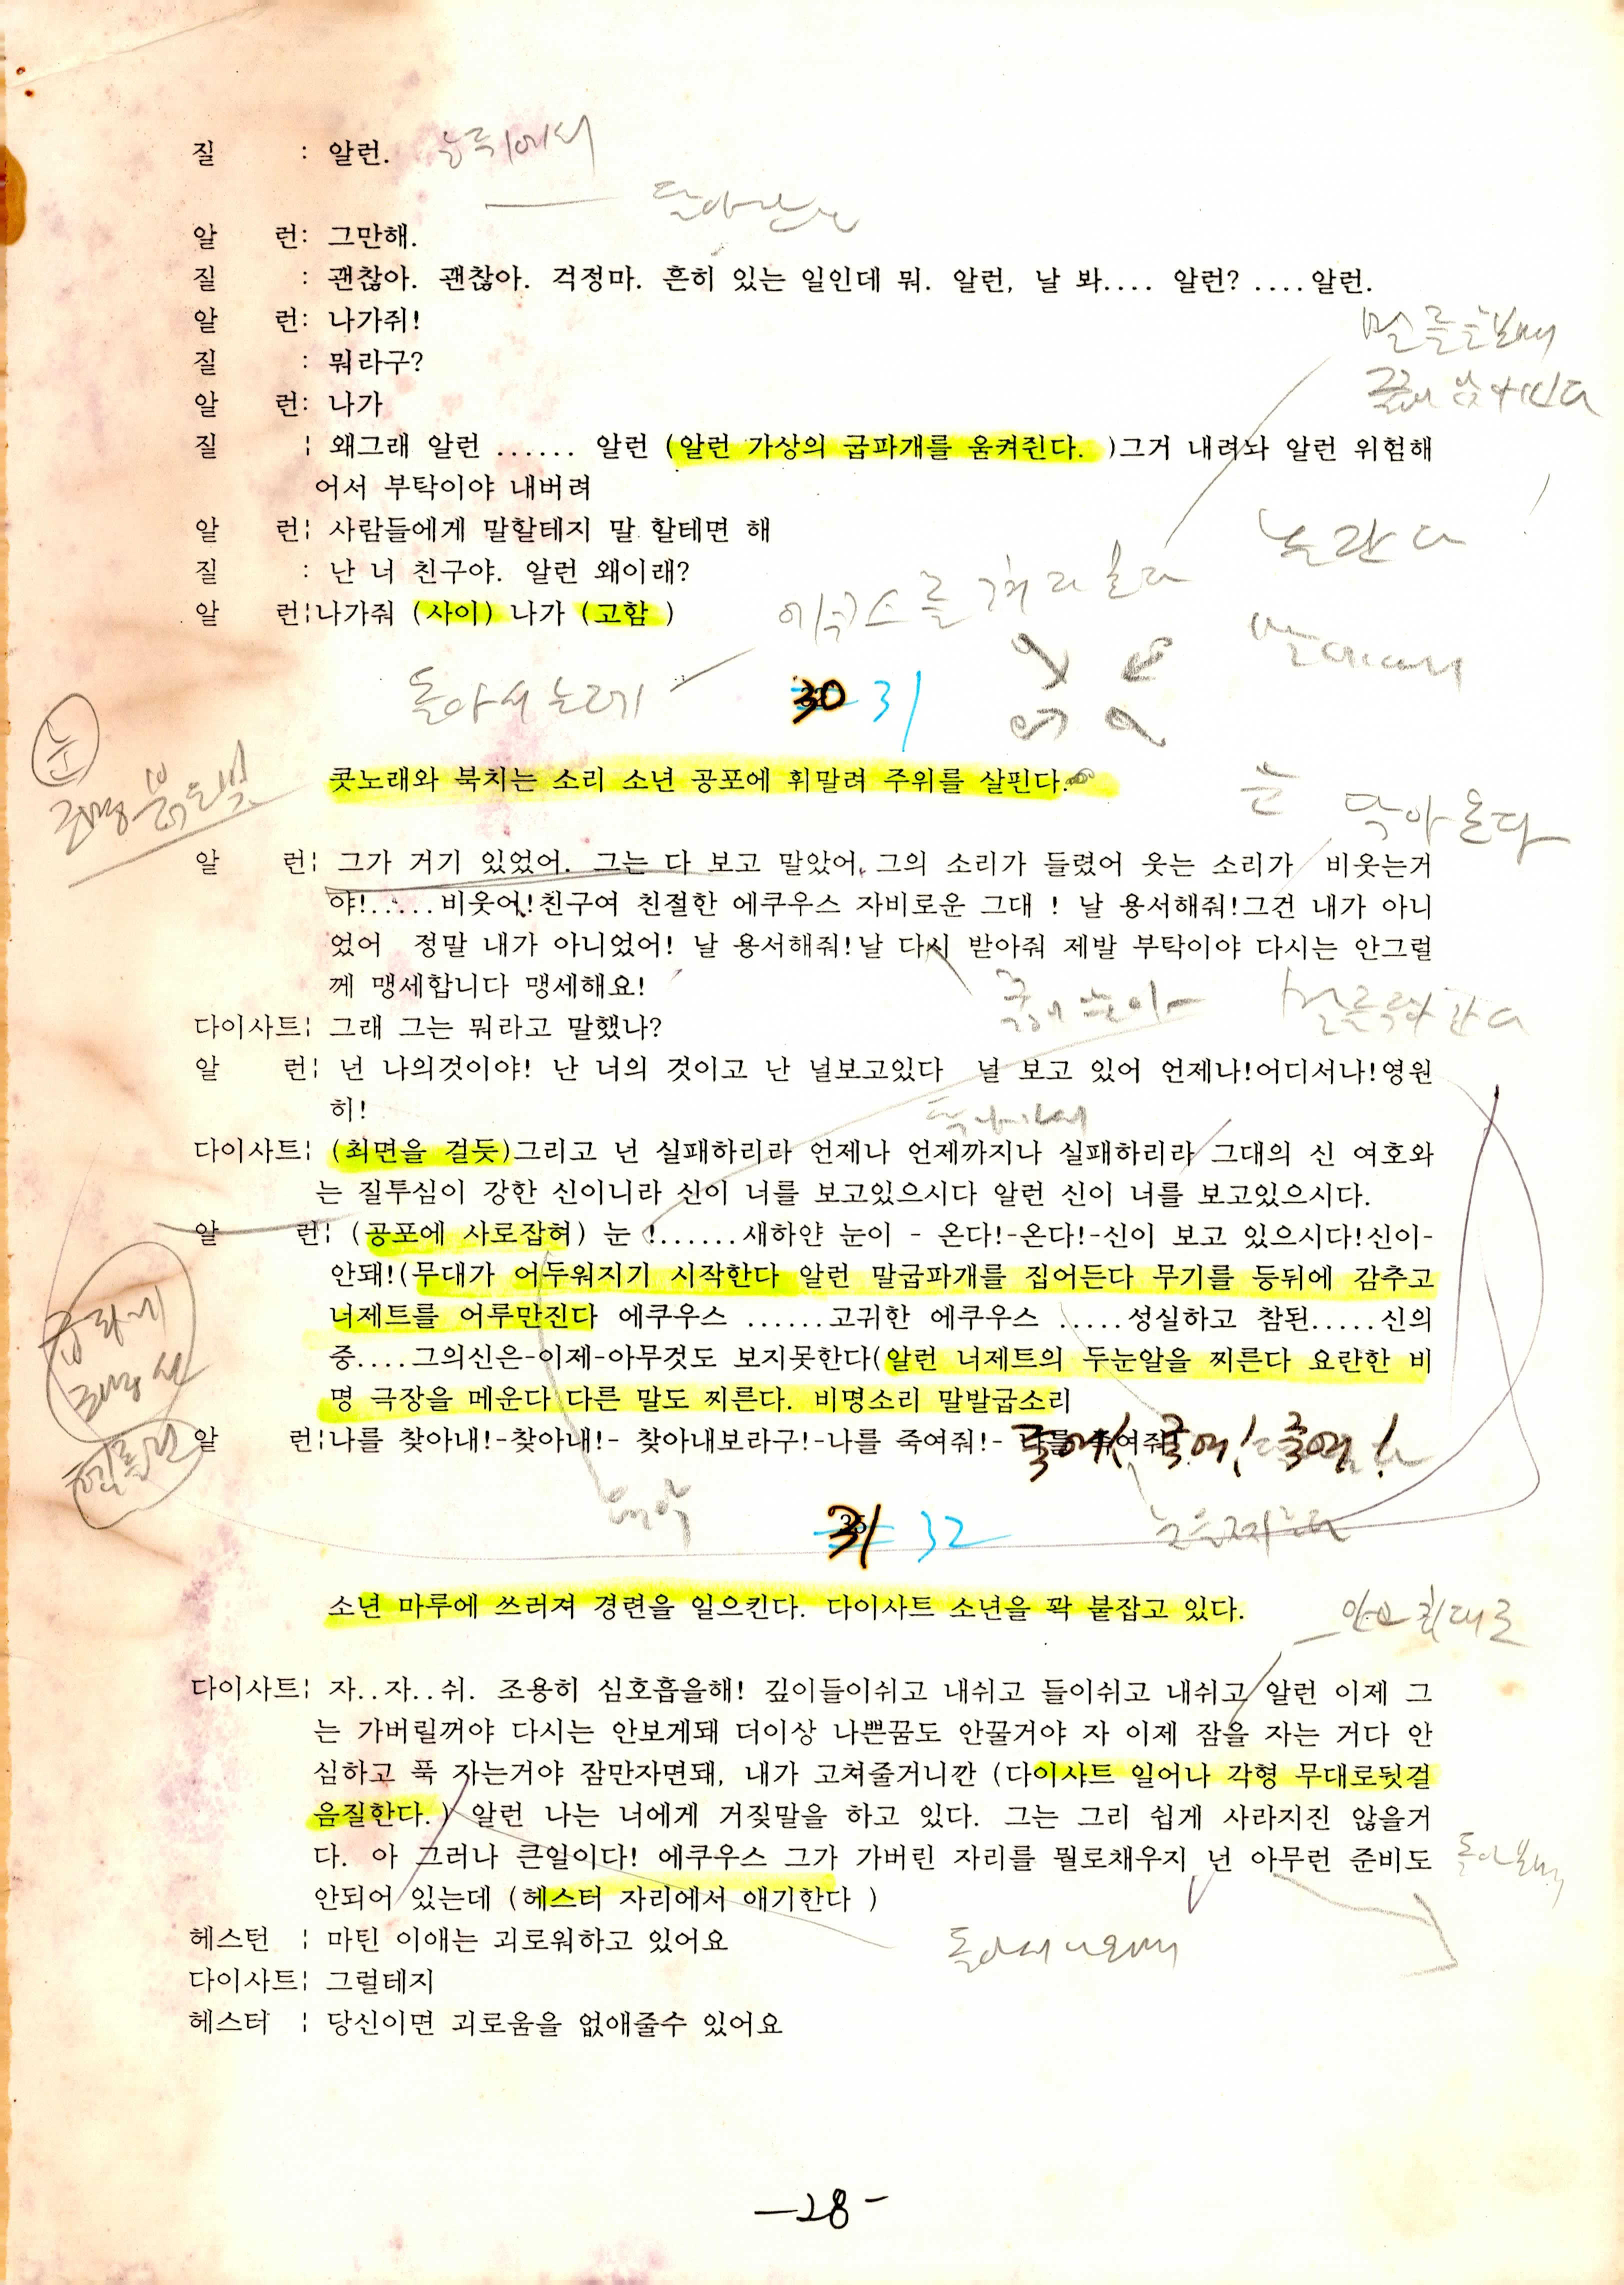 질 : 알런.
알 런: 그만해.
질 : 괜찮아. 괜찮아. 걱정마. 흔히 있는 일인데 뭐. 알런, 날 봐.... 알런? ....알런.
알 런: 나가줘!
질 : 뭐라구?
알 런: 나가
질 ¦ 왜그래 알런 ...... 알런 (알런 가상의 굽파개를 움켜쥔다. )그거 내려놔 알런 위험해
어서 부탁이야 내버려
알 런¦ 사람들에게 말할테지 말 할테면 해
질 : 난 너 친구야. 알런 왜이래?
알 런¦나가줘 (사이) 나가 (고함 )
돌아서 노려
30 31
눈
콧노래와 북치는 소리 소년 공포에 휘말려 주위를 살핀다.
눈
알 런¦ 그가 거기 있었어. 그는 다 보고 말았어. 그의 소리가 들렸어 웃는 소리가 비웃는거
야!.....비웃어!친구여 친절한 에쿠우스 자비로운 그대 ! 날 용서해줘!그건 내가 아니
었어 정말 내가 아니었어! 날 용서해줘!날 다시 받아줘 제발 부탁이야 다시는 안그럴
께 맹세합니다 맹세해요!
다이사트¦ 그래 그는 뭐라고 말했나?
알 런¦ 넌 나의것이야! 난 너의 것이고 난 널보고있다 널 보고 있어 언제나!어디서나!영원
히!
다이사트¦ (최면을 걸듯)그리고 넌 실패하리라 언제나 언제까지나 실패하리라 그대의 신 여호와
는 질투심이 강한 신이니라 신이 너를 보고있으시다 알런 신이 너를 보고있으시다.
알 런¦ (공포에 사로잡혀) 눈 !......새하얀 눈이 - 온다!-온다!-신이 보고 있으시다!신이-
안돼!(무대가 어두워지기 시작한다 알런 말굽파개를 집어든다 무기를 등뒤에 감추고
너제트를 어루만진다 에쿠우스 ......고귀한 에쿠우스 .....성실하고 참된.....신의
중....그의신은-이제-아무것도 보지못한다(알런 너제트의 두눈알을 찌른다 요란한 비
명 극장을 메운다 다른 말도 찌른다. 비명소리 말발굽소리
알 런¦나를 찾아내!-찾아내!- 찾아내보라구!-나를 죽여줘!- 죽여! 죽여! 죽여!
31 32
소년 마루에 쓰러져 경련을 일으킨다. 다이사트 소년을 꽉 붙잡고 있다.
다이사트¦ 자..자..쉬. 조용히 심호흡을해! 깊이들이쉬고 내쉬고 들이쉬고 내쉬고 알런 이제 그
는 가버릴꺼야 다시는 안보게돼 더이상 나쁜꿈도 안꿀거야 자 이제 잠을 자는 거다 안
심하고 푹 자는거야 잠만자면돼, 내가 고쳐줄거니깐 (다이사트 일어나 각형 무대로뒷걸
음질한다.) 알런 나는 너에게 거짓말을 하고 있다. 그는 그리 쉽게 사라지진 않을거
다. 아 그러나 큰일이다! 에쿠우스 그가 가버린 자리를 뭘로채우지 넌 아무런 준비도
안되어 있는데 (헤스터 자리에서 얘기한다 )
헤스턴 ¦ 마틴 이애는 괴로워하고 있어요
다이사트¦ 그럴테지
헤스터 ¦ 당신이면 괴로움을 없애줄수 있어요
-28-